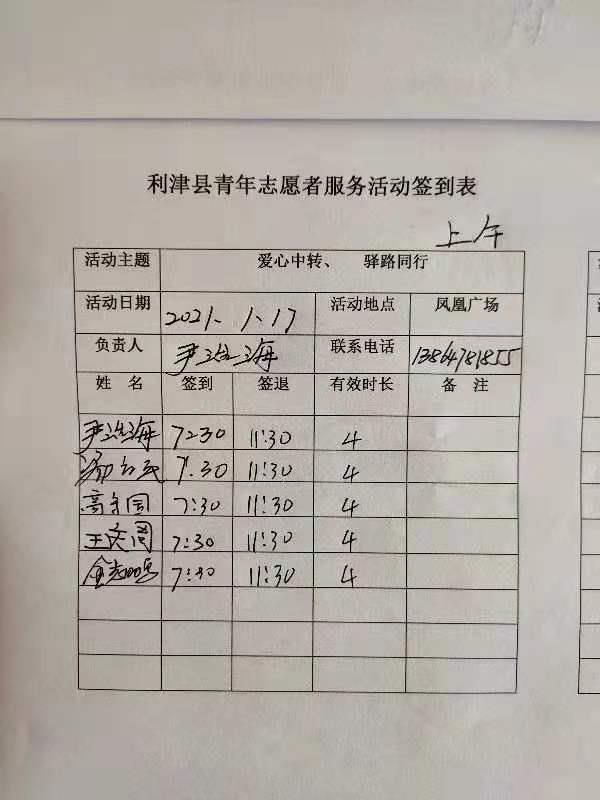 利津县青年志愿者服务活动签到表
上午
活动主题 爱心中转、 驿路同行
活动日期 2021、1、17 活动地点 凤凰广场
负责人 尹海 联系电话 13864781855
姓 名 签到 签退 有效时长 备 注
尹海 7:30 11:30 4
7:30 11:30 4
高守国 7:30 11:30 4
王文周 7:30 11:30 4
金志鹏 7:30 11:30 4